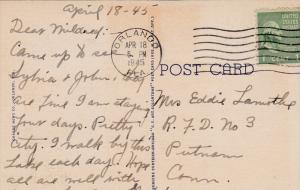 April 18-45
Dear Mildred:
Came up to see
Sylvia & John. They
are fine I am staying
four days. Pretty
City. I walk by this
Lake each day. Hope
all are well with
ORLANDO
APR 18
5 PM
1945
FLA.
POST CARD
1 CENT
Mrs Eddie Lamothe
R.F.D. No 3
Putnam
Conn.